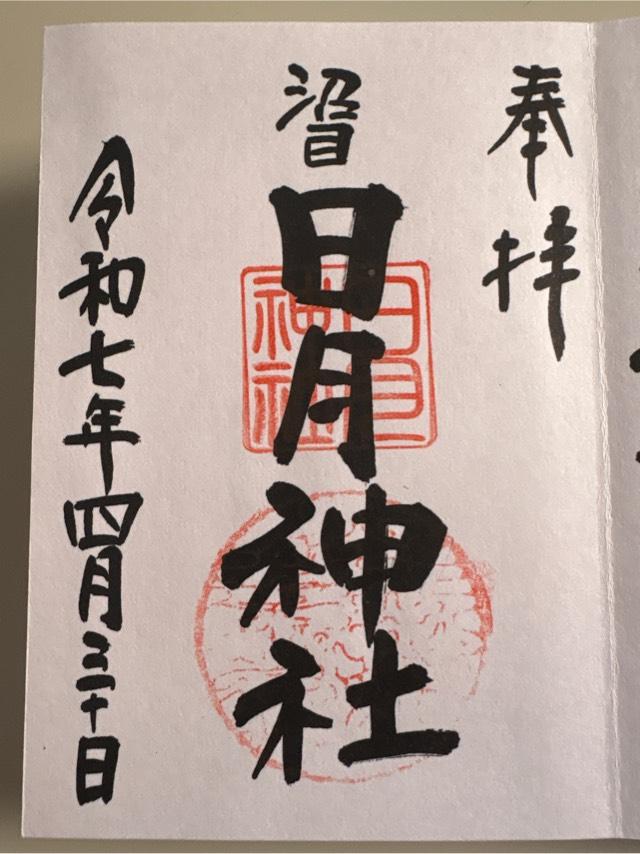 奉拝
沼目
日月神社
日月神社
令和七年四月三十日